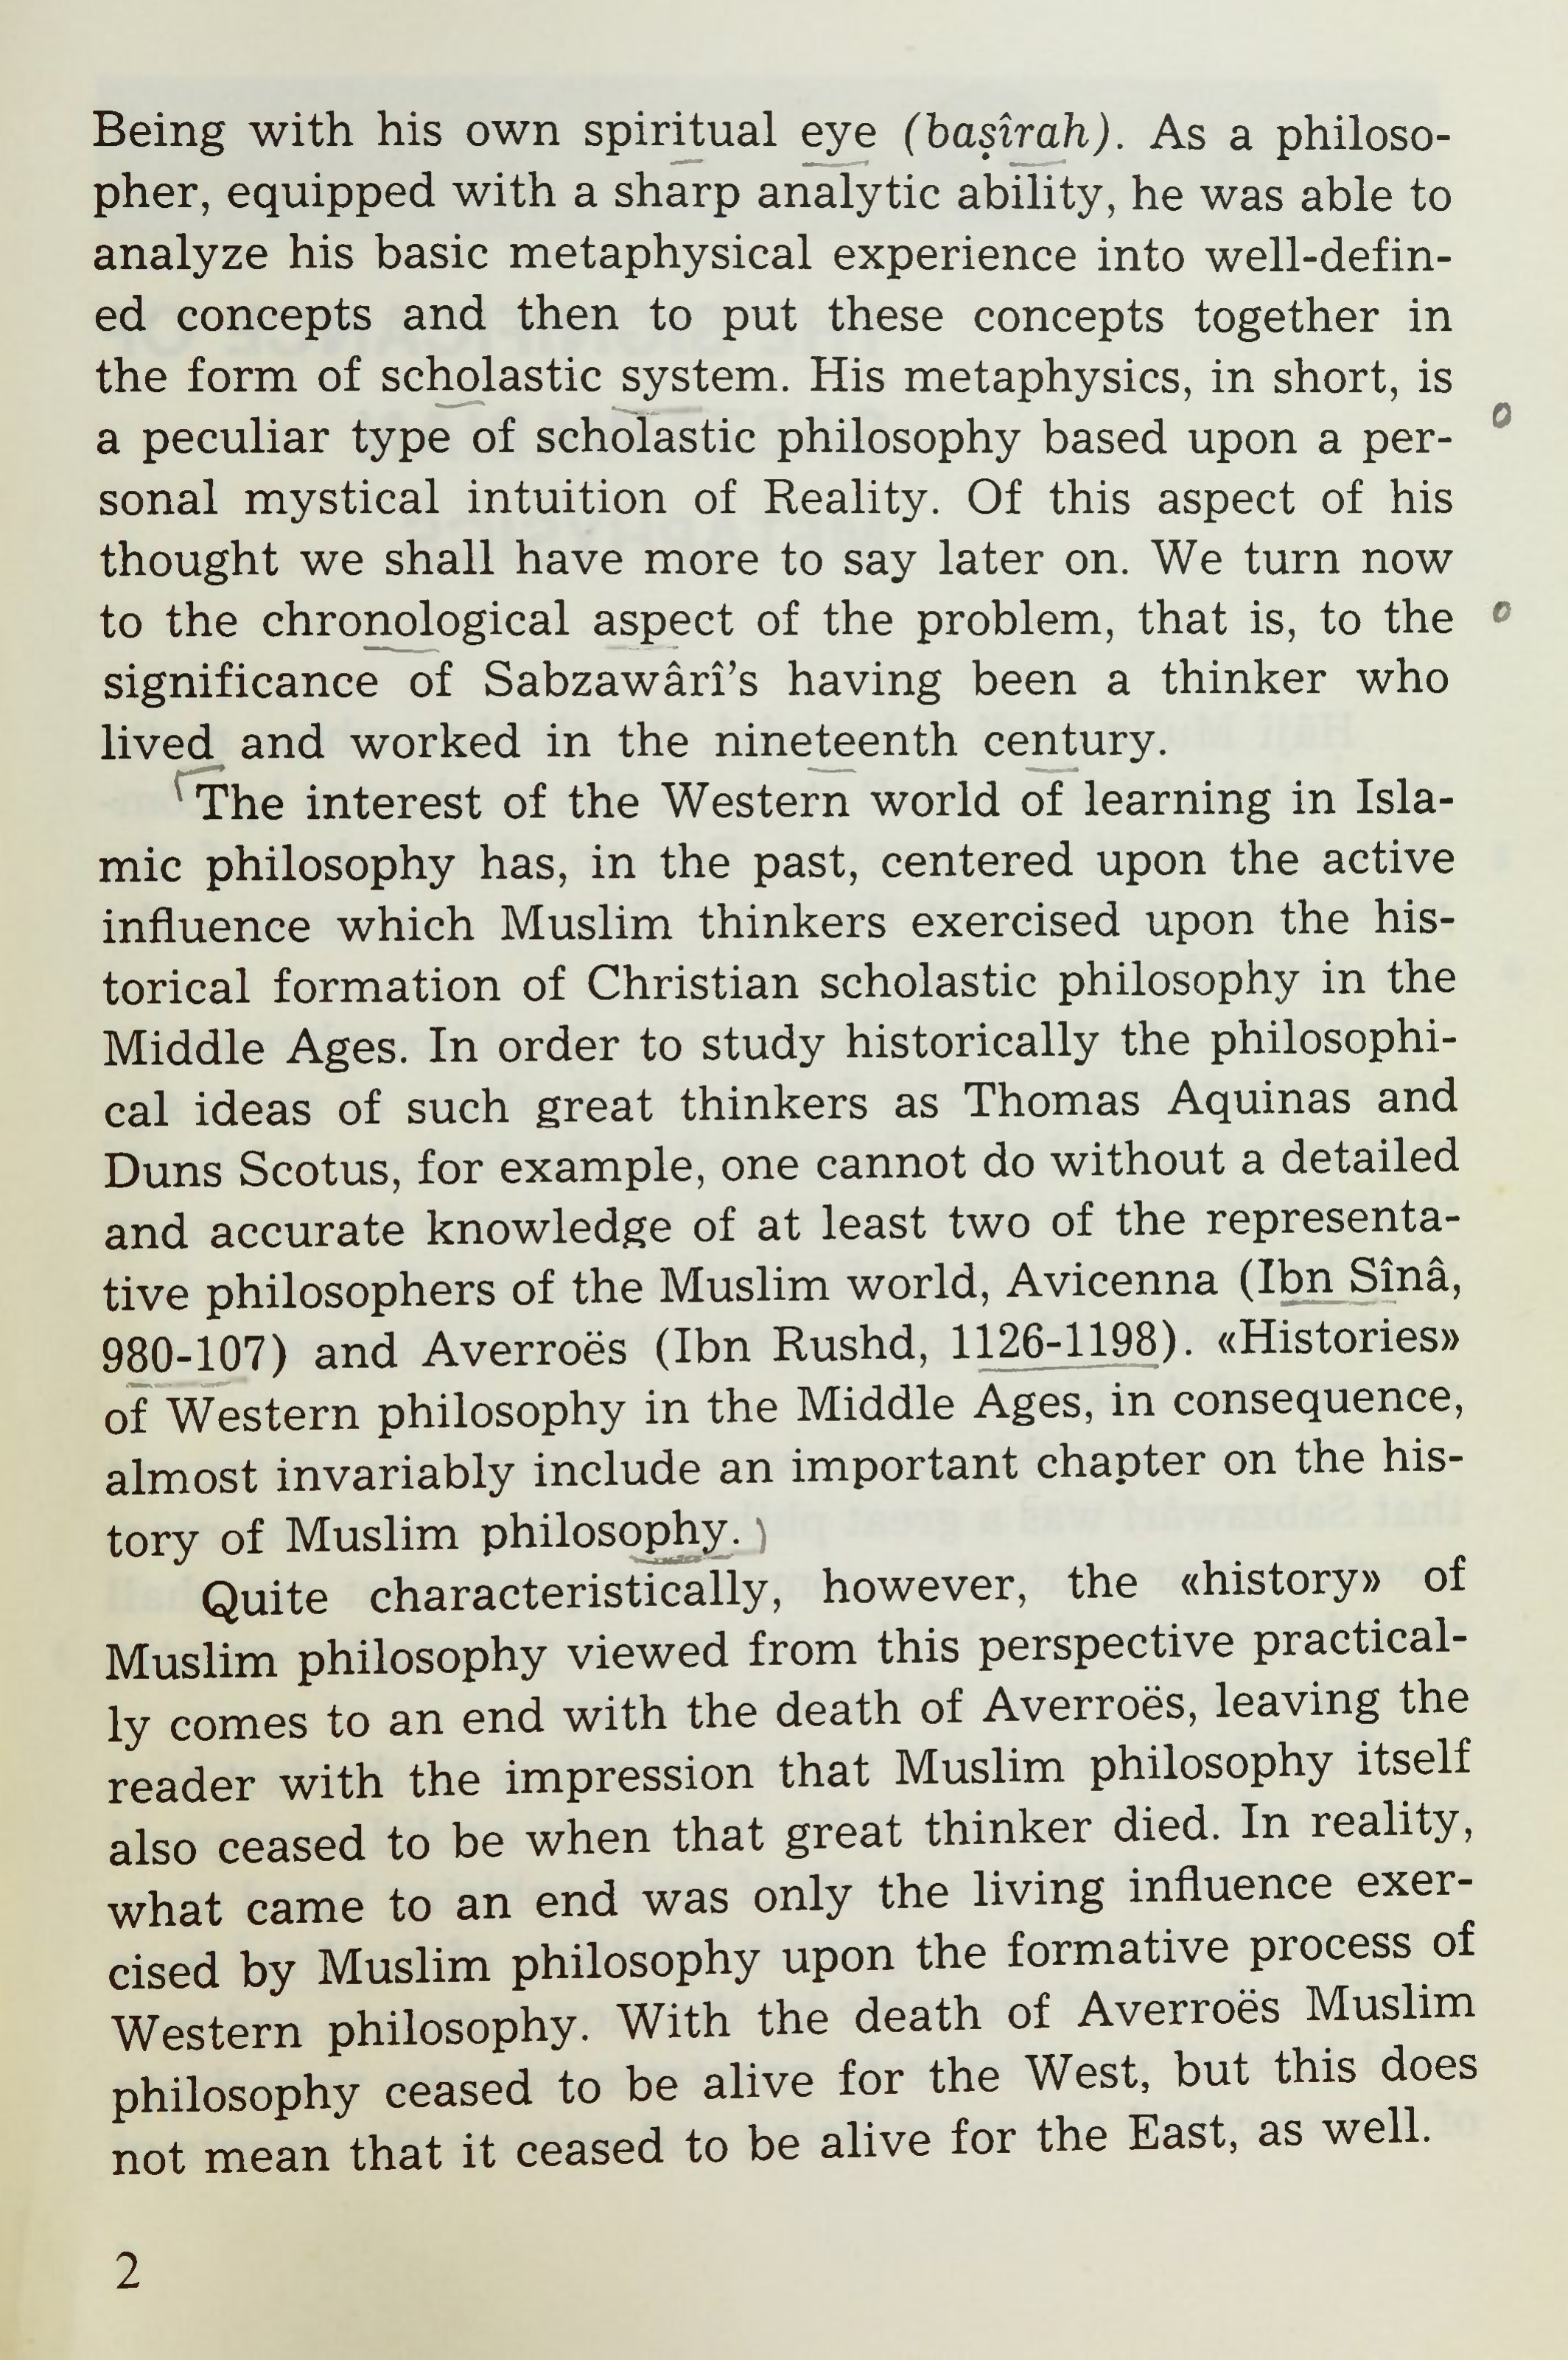 Being with his own spiritual eye (baṣîrah). As a philoso-
pher, equipped with a sharp analytic ability, he was able to
analyze his basic metaphysical experience into well-defin-
ed concepts and then to put these concepts together in
the form of scholastic system. His metaphysics, in short, is
a peculiar type of scholastic philosophy based upon a per-
sonal mystical intuition of Reality. Of this aspect of his
thought we shall have more to say later on. We turn now
to the chronological aspect of the problem, that is, to the
significance of Sabzawârî’s having been a thinker who
lived and worked in the nineteenth century.
The interest of the Western world of learning in Isla-
mic philosophy has, in the past, centered upon the active
influence which Muslim thinkers exercised upon the his-
torical formation of Christian scholastic philosophy in the
Middle Ages. In order to study historically the philosophi-
cal ideas of such great thinkers as Thomas Aquinas and
Duns Scotus, for example, one cannot do without a detailed
and accurate knowledge of at least two of the representa-
tive philosophers of the Muslim world, Avicenna (Ibn Sînâ,
980-107) and Averroës (Ibn Rushd, 1126-1198). «Histories»
of Western philosophy in the Middle Ages, in consequence,
almost invariably include an important chapter on the his-
tory of Muslim philosophy.
Quite characteristically, however, the «history» of
Muslim philosophy viewed from this perspective practical-
ly comes to an end with the death of Averroës, leaving the
reader with the impression that Muslim philosophy itself
also ceased to be when that great thinker died. In reality,
what came to an end was only the living influence exer-
cised by Muslim philosophy upon the formative process of
Western philosophy. With the death of Averroës Muslim
philosophy ceased to be alive for the West, but this does
not mean that it ceased to be alive for the East, as well.
2